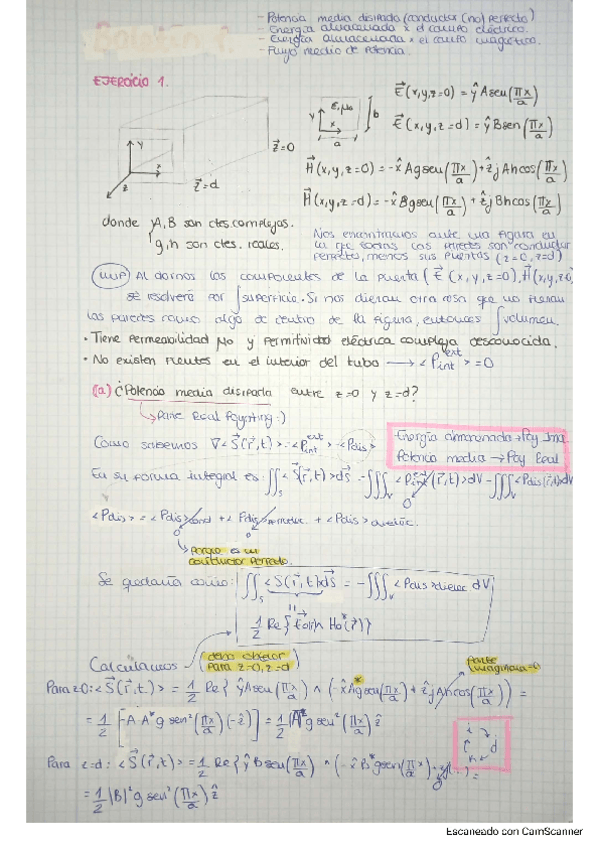 - Potencia media disipada (conductor (no) perfecto)
- Energía almacenada x el campo eléctrico.
- Energía almacenada x el campo magnético.
- Flujo medio de potencia.
EJERCICIO 1.
y
x
z
z=0
z=d
y
x
ε, μ₀
b
a
E⃗(x,y,z=0) = ŷ A sen(πx/a)
E⃗(x,y,z=d) = ŷ B sen(πx/a)
H⃗(x,y,z=0) = -x̂ A g sen(πx/a) + ẑ j A h cos(πx/a)
H⃗(x,y,z=d) = -x̂ B g sen(πx/a) + ẑ j B h cos(πx/a)
donde A,B son ctes. complejas.
g,h son ctes. reales.
Nos encontramos ante una figura en
la que todas las paredes son conductor
perfecto, menos sus puertas (z=0, z=d)
IMP Al darnos las componentes de la puerta (E⃗(x,y,z=0), H⃗(x,y,z=0)
se resolverá por ∫superficie. Si nos dieran otra cosa que no fueran
las paredes como algo de dentro de la figura, entonces ∫volumen.
• Tiene permeabilidad μ₀ y permitividad eléctrica compleja desconocida.
• No existen fuentes en el interior del tubo → <P_int^ext> = 0
(a) ¿Potencia media disipada entre z=0 y z=d?
↳ Parte Real Poynting :)
Como sabemos ∇<S⃗(r⃗,t)> = <P_int^ext> - <Pdis>
Energía almacenada → Poy Ima
Potencia media → Poy Real
En su forma integral es: ∬_S <S⃗(r⃗,t)> ds⃗ = ∭ <P_int^ext(r⃗,t)> dV - ∭ <Pdis(r⃗,t)> dV
0
<Pdis> = <Pdis>cond + <Pdis>magnetic + <Pdis>dieléc.
0 0
↳ Porque es un
conductor perfecto.
Se quedaría como: ∬_S <S(r⃗,t)> ds⃗ = - ∭_V <Pdis>dielec dV
1/2 Re{E⃗o(r) ∧ Ho*(r⃗)}
Calculamos
(debo obtener
para z=0, z=d)
Parte
imaginaria=0
Para z=0: <S⃗(r⃗,t)> = 1/2 Re{ŷ A sen(πx/a) ∧ (-x̂ A* g sen(πx/a) + ẑ j A h cos(πx/a))} =
= 1/2 [-A·A* g sen²(πx/a)(-ẑ)] = 1/2 |A|² g sen²(πx/a) ẑ
Para z=d: <S⃗(r⃗,t)> = 1/2 Re{ŷ B sen(πx/a) ∧ (-x̂ B* g sen(πx/a) + =
0
= 1/2 |B|² g sen²(πx/a) ẑ
Escaneado con CamScanner